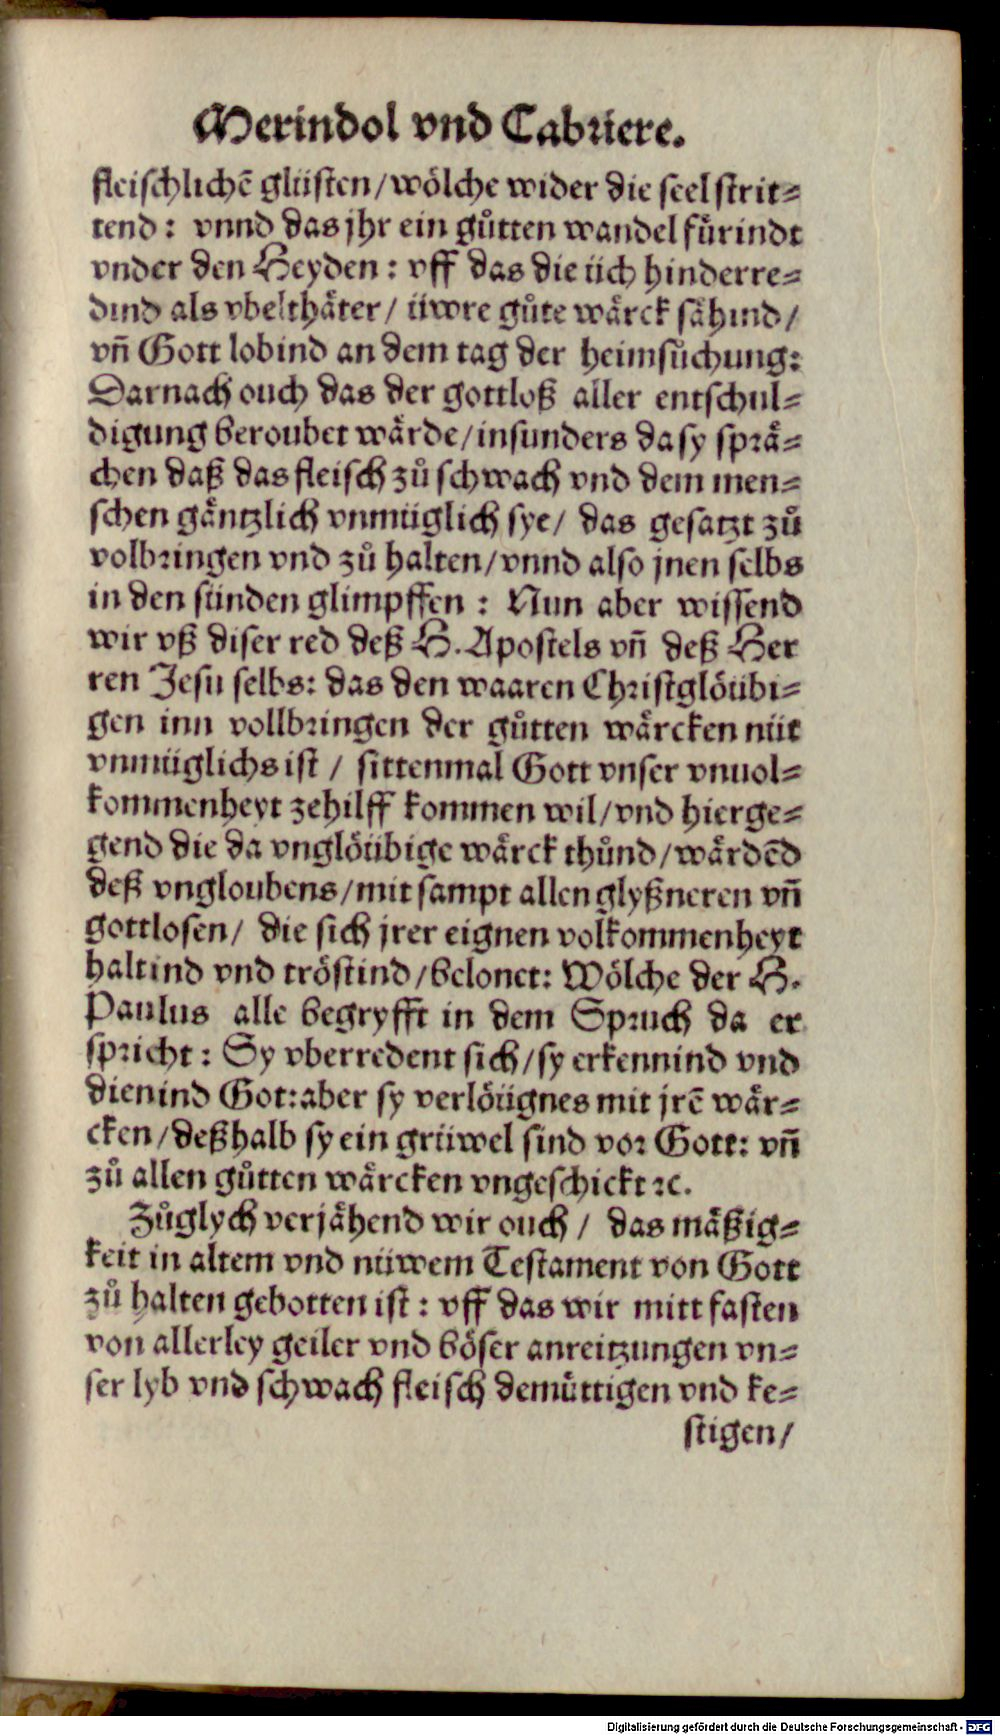 Merindol vnd Cabriere.
fleischlichē glüsten/wölche wider die seel strit⸗
tend: vnnd das jhr ein gůtten wandel fürindt
vnder den Heyden: vff das die üch hinderre⸗
dind als vbelthäter/ üwre gůte wärck sähind/
vñ Gott lobind an dem tag der heimsůchung:
Darnach ouch das der gottloß aller entschul⸗
digung beroubet wärde/insunders da sy sprä⸗
chen daß das fleisch zů schwach vnd dem men⸗
schen gäntzlich vnmüglich sye/ das gesatzt zů
volbringen vnd zů halten/vnnd also jnen selbs
in den sünden glimpffen: Nun aber wissend
wir vß diser red deß H. Apostels vñ deß Her
ren Jesu selbs: das den waaren Christglöübi⸗
gen inn vollbringen der gůtten wärcken nüt
vnmüglichs ist / sittenmal Gott vnser vnuol⸗
kommenheyt zehilff kommen wil/vnd hierge⸗
gend die da vnglöübige wärck thůnd/wärdēd
deß vngloubens/mit sampt allen glyßneren vñ
gottlosen/ die sich jrer eignen volkommenheyt
haltind vnd tröstind/belonet: Wölche der H.
Paulus alle begryfft in dem Spruch da er
spricht: Sy vberredent sich/sy erkennind vnd
dienind Got:aber sy verlöügnes mit jrē wär⸗
cken/deßhalb sy ein grüwel sind vor Gott: vñ
zů allen gůtten wärcken vngeschickt ꝛc.
Zůglych verjähend wir ouch / das mäßig⸗
keit in altem vnd nüwem Testament von Gott
zů halten gebotten ist: vff das wir mitt fasten
von allerley geiler vnd böser anreitzungen vn⸗
ser lyb vnd schwach fleisch demüttigen vnd ke⸗
stigen/
Digitalisierung gefördert durch die Deutsche Forschungsgemeinschaft - DFG